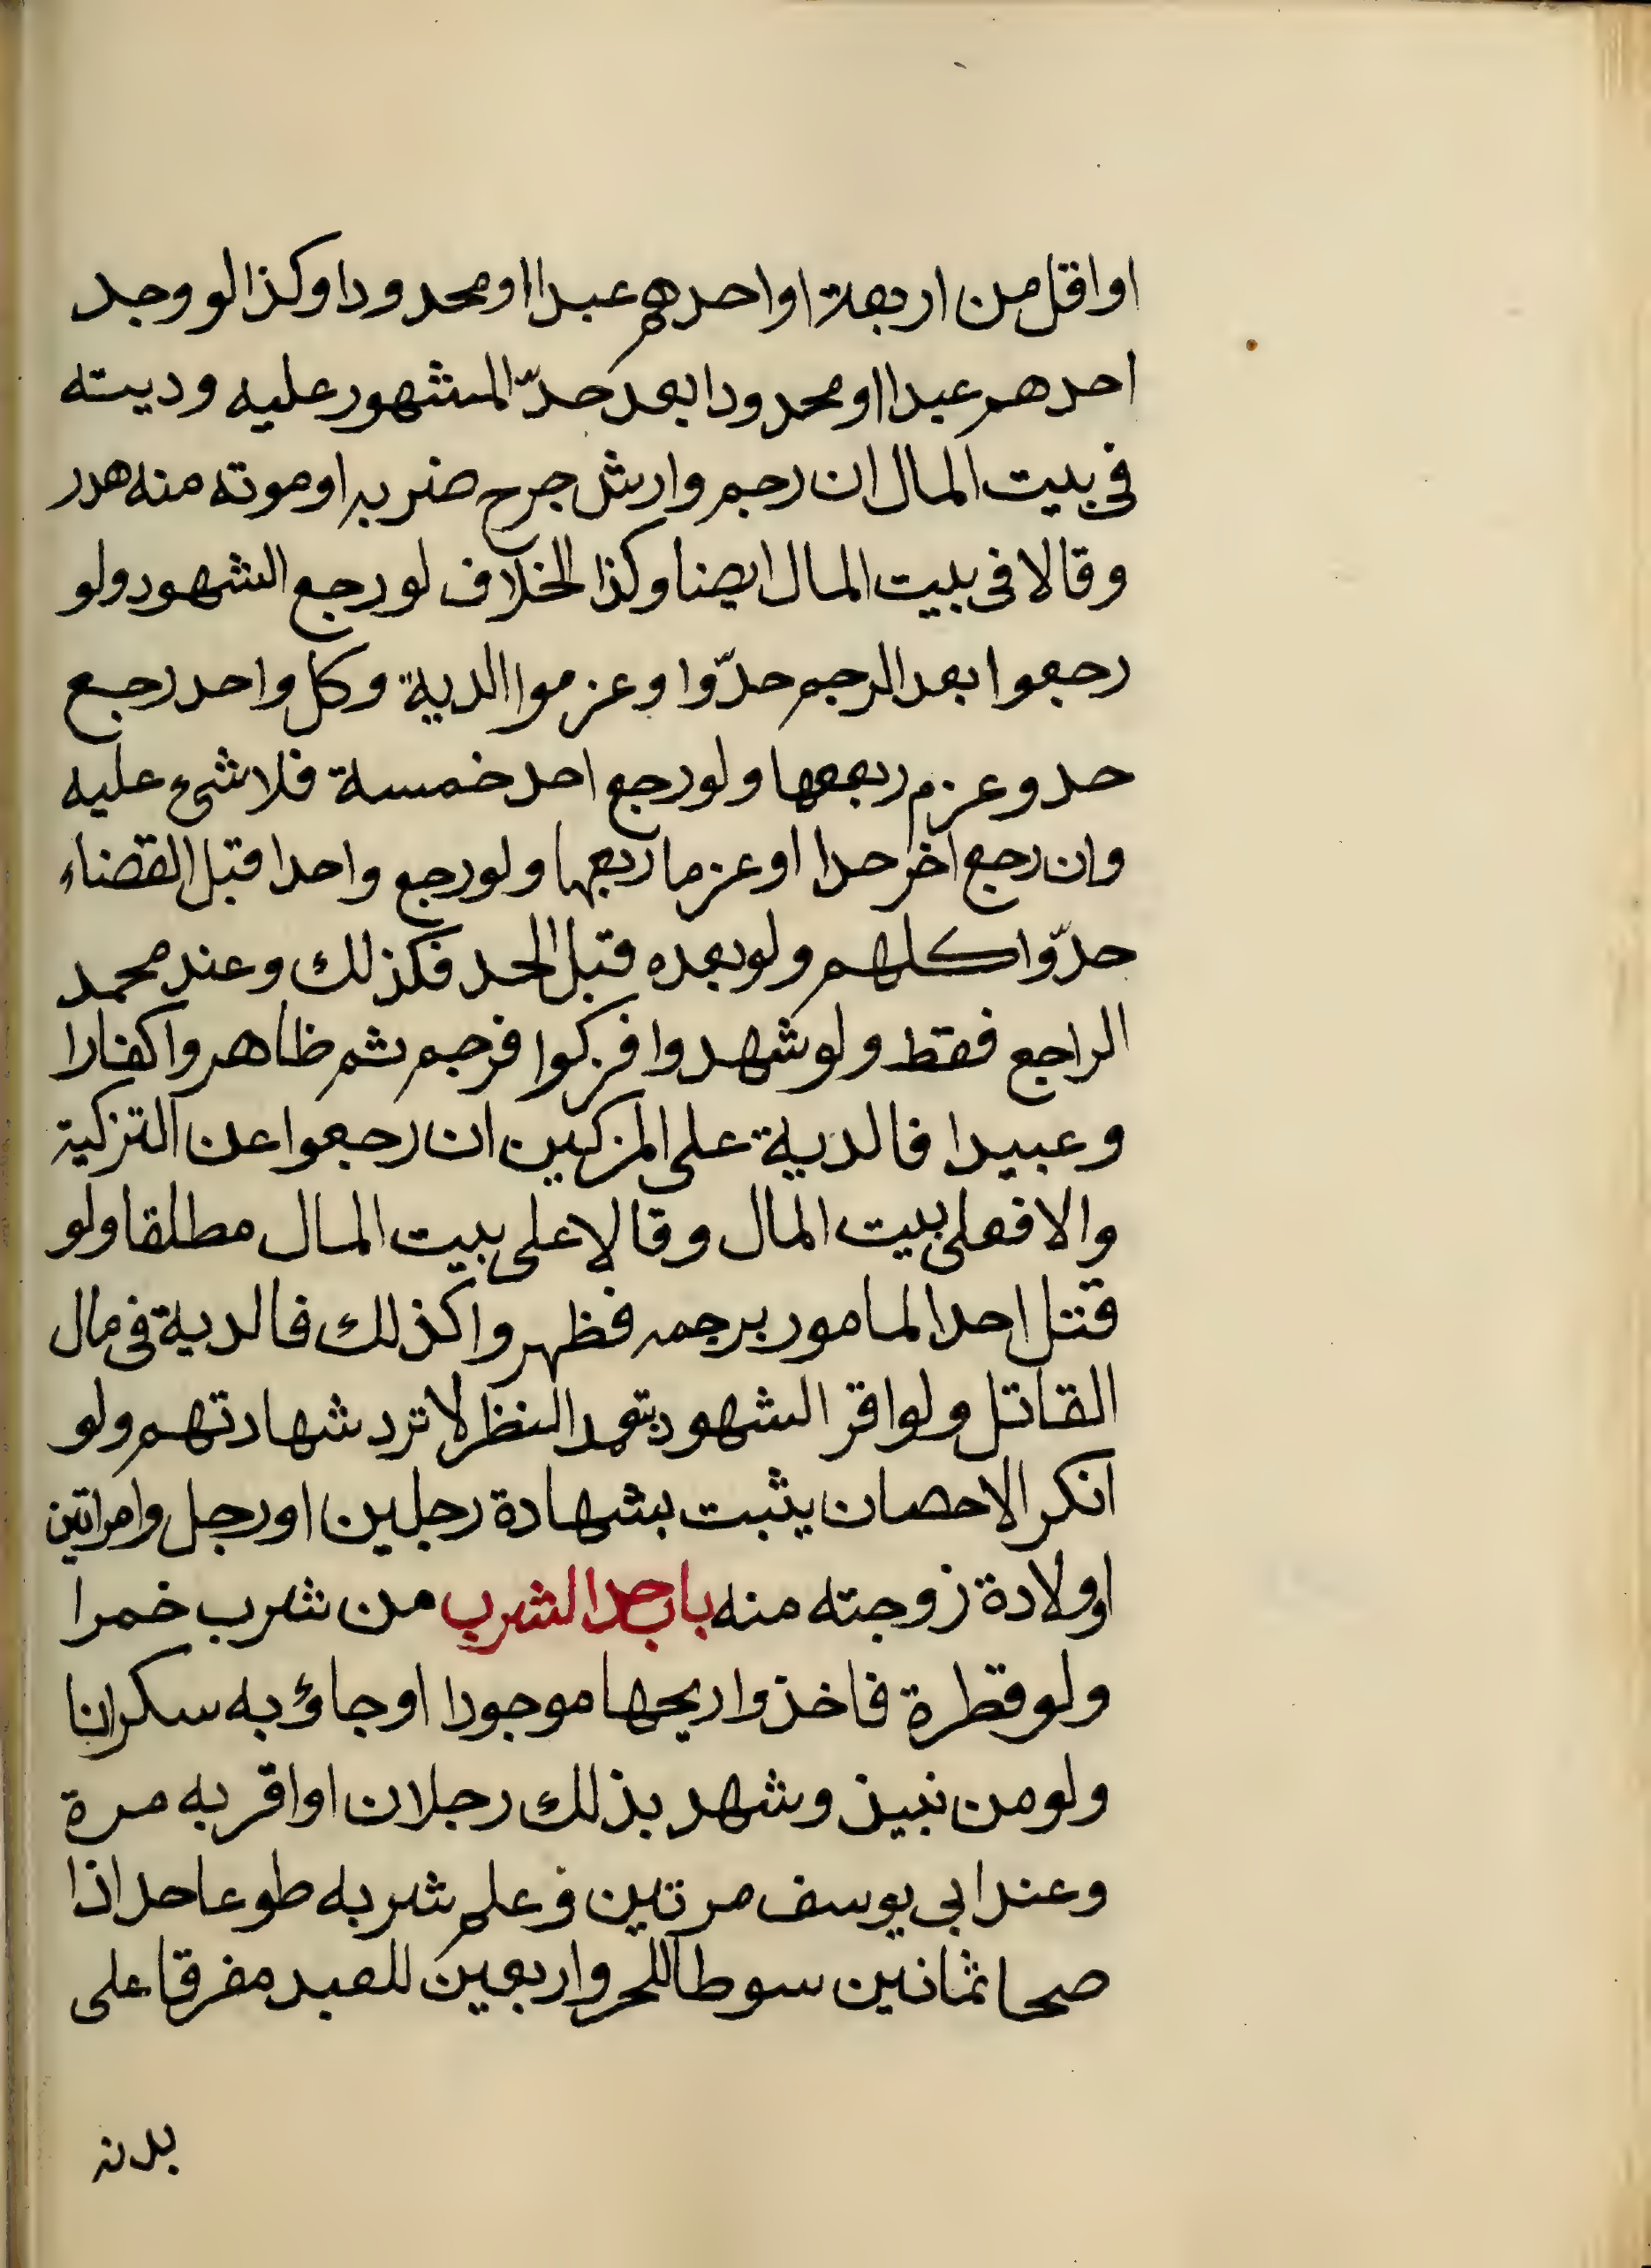 او اقل من اربعة او احدهم عبدا او محدودا وكذا لو وجد
احدهم عبدا او محدودا بعد حدّ المشهور عليه وديته
فى بيت المال ان رجم وارش جرح ضربه او موته منه هدر
وقالا فى بيت المال ايضا وكذا الخلاف لو رجع الشهود ولو
رجعوا بعد الرجم حدّوا وعزموا الدية وكل واحد رجع
حد وعزم ربعها ولو رجع احد خمسة فلا شئ عليه
وان رجع اخر حدا او عزما ربعها ولو رجع واحدا قبل القضاء
حدّوا كلهم ولو بعده قبل الحد فكذلك وعند محمد
الراجع فقط ولو شهدوا فزكوا فرجم ثم ظاهروا كفارا
وعبيدا فالدية على المزكين ان رجعوا عن التزكية
والا فعلى بيت المال وقالا على بيت المال مطلقا ولو
قتل احد المامور برجمه فظهروا كذلك فالدية فى مال
القاتل ولو اقر الشهود بتعمد النظر لا ترد شهادتهم ولو
انكر الاحصان يثبت بشهادة رجلين او رجل وامراتين
او ولادة زوجته منه باب حد الشرب من شرب خمرا
ولو قطرة فاخذ واريحها موجودا او جاؤ به سكرانا
ولو من نبيذ وشهد بذلك رجلان او اقر به مرة
وعند ابى يوسف مرتين وعلم شربه طوعا حد اذا
صحا ثمانين سوطا للحر واربعين للعبد مفرقا على
بدنه